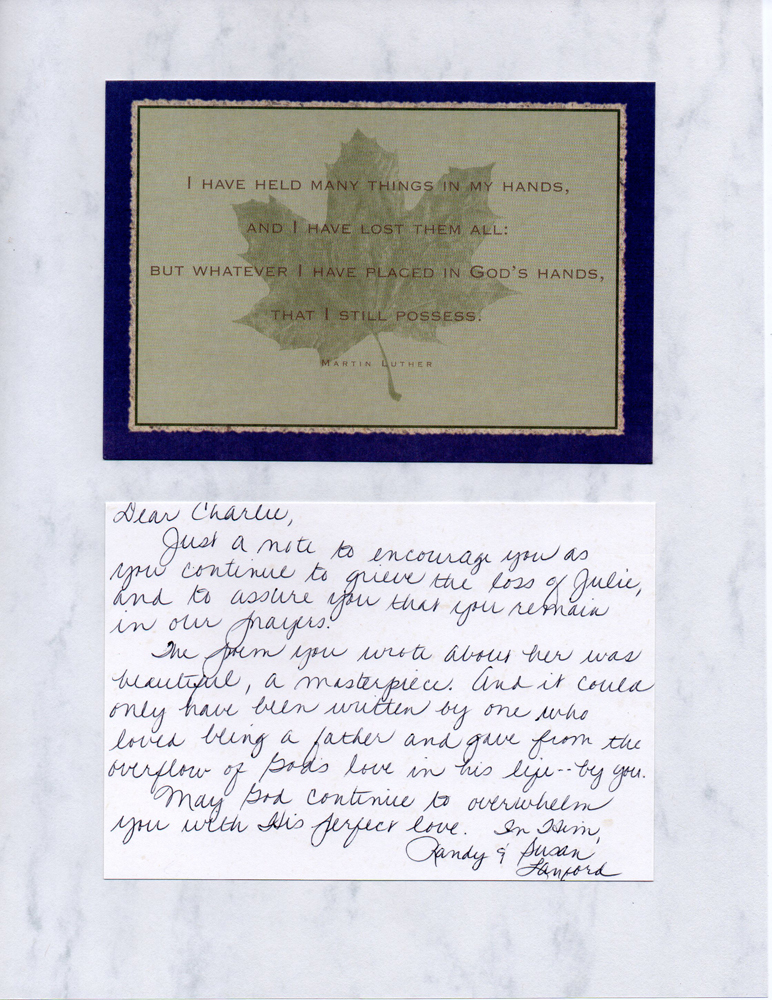 I HAVE HELD MANY THINGS IN MY HANDS,
AND I HAVE LOST THEM ALL:
BUT WHATEVER I HAVE PLACED IN GOD'S HANDS,
THAT I STILL POSSESS.
MARTIN LUTHER
Dear Charlie,
Just a note to encourage you as
you continue to grieve the loss of Julie,
and to assure you that you remain
in our prayers.
The poem you wrote about her was
beautiful, a masterpiece. And it could
only have been written by one who
loved being a father and gave from the
overflow of God's love in his life--by you.
May God continue to overwhelm
you with His perfect love. In Him,
Randy & Susan
Lanford